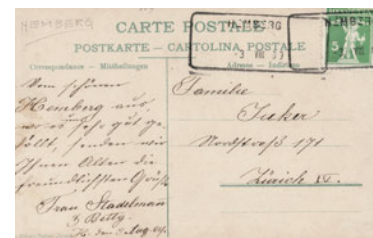 HEMBERG
CARTE POSTALE
POSTKARTE — CARTOLINA POSTALE
Correspondance — Mitteilungen
Adresse — Indirizzo
HEMBERG
HEMBERG
-3 VIII
5
Vom schönen
Hemberg aus,
wo es sehr gut ge-
fällt, senden wir
Ihnen Allen die
freundlichsten Grüße
Frau Stadelman
& Betty.
H. den 3. Aug.
Familie
Juker
Nordstraß 171
Zürich IV.